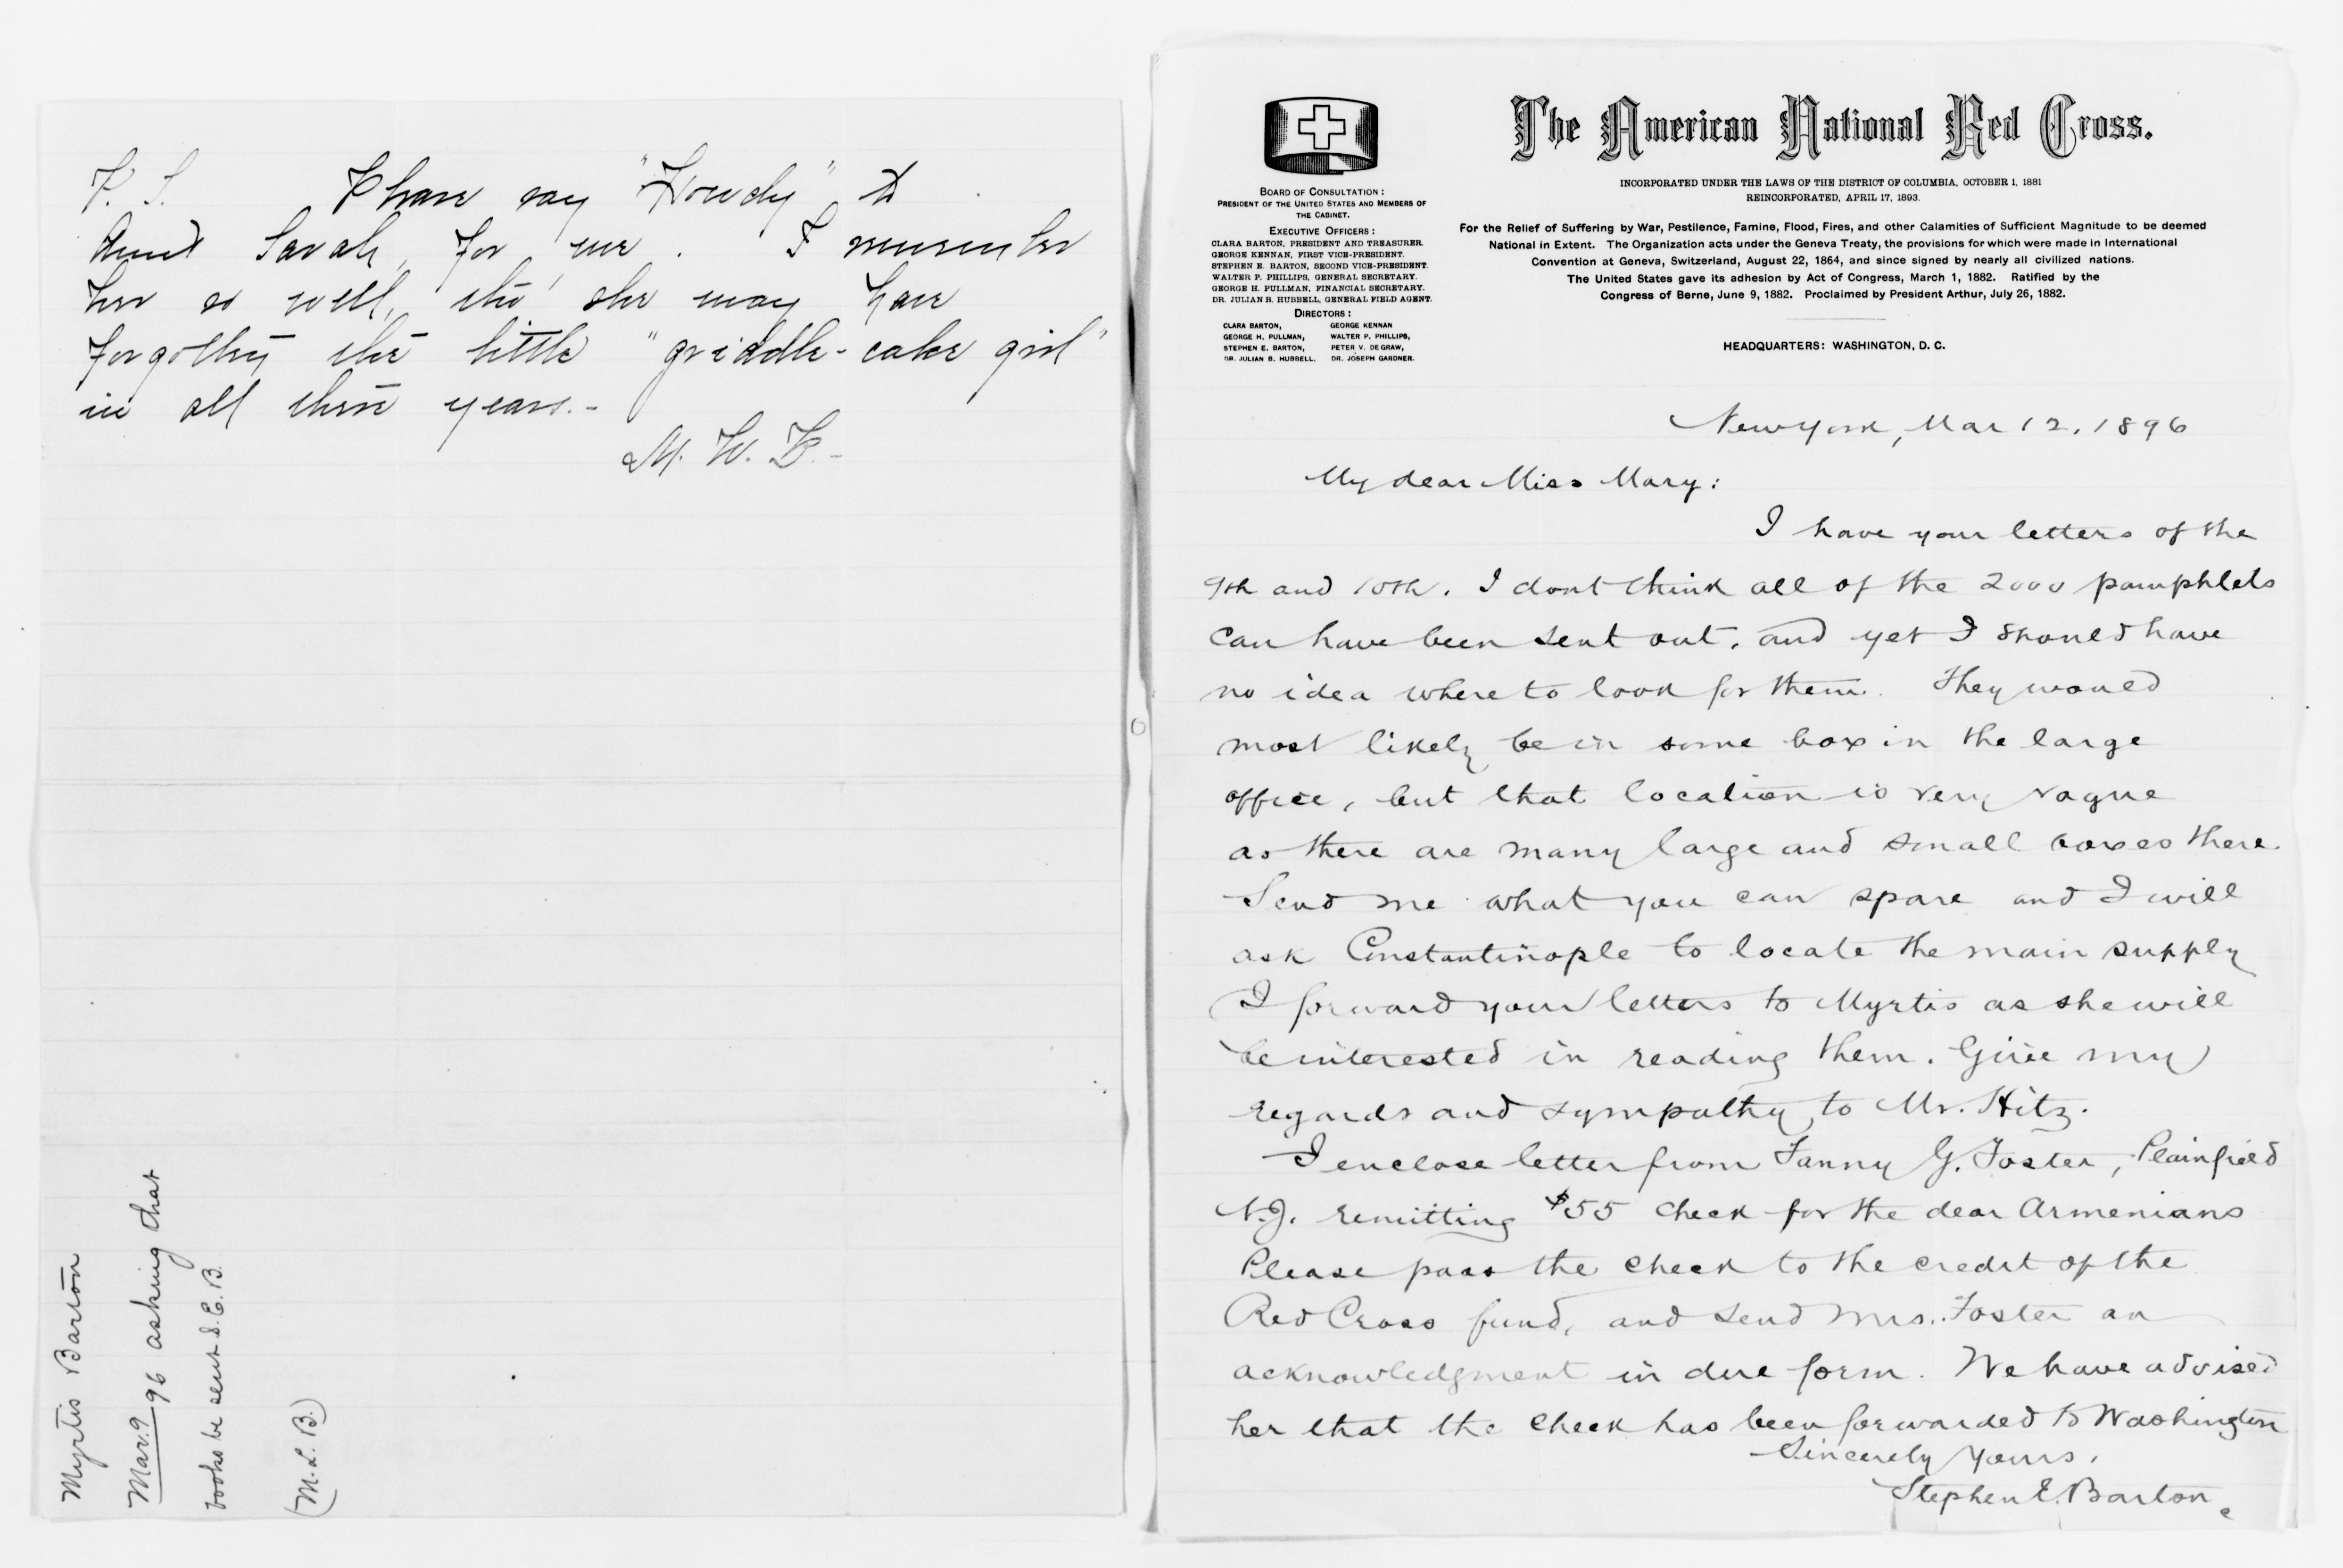 P. S. Please say "Howdy" to
Aunt Sarah, for me. I remember
her so well, tho' she may have
forgotten the little "griddle-cake girl"
in all these years.-
M. W. B.-
Myrtis Barton
Mar. 9 96 asking that
books be sent S. E. B.
(M. L. B.)
The American National Red Cross.
INCORPORATED UNDER THE LAWS OF THE DISTRICT OF COLUMBIA, OCTOBER 1, 1881
REINCORPORATED, APRIL 17, 1893.
For the Relief of Suffering by War, Pestilence, Famine, Flood, Fires, and other Calamities of Sufficient Magnitude to be deemed
National in Extent. The Organization acts under the Geneva Treaty, the provisions for which were made in International
Convention at Geneva, Switzerland, August 22, 1864, and since signed by nearly all civilized nations.
The United States gave its adhesion by Act of Congress, March 1, 1882. Ratified by the
Congress of Berne, June 9, 1882. Proclaimed by President Arthur, July 26, 1882.
HEADQUARTERS: WASHINGTON, D. C.
BOARD OF CONSULTATION:
PRESIDENT OF THE UNITED STATES AND MEMBERS OF
THE CABINET.
EXECUTIVE OFFICERS:
CLARA BARTON, PRESIDENT AND TREASURER.
GEORGE KENNAN, FIRST VICE-PRESIDENT.
STEPHEN E. BARTON, SECOND VICE-PRESIDENT.
WALTER P. PHILLIPS, GENERAL SECRETARY.
GEORGE H. PULLMAN, FINANCIAL SECRETARY.
DR. JULIAN B. HUBBELL, GENERAL FIELD AGENT.
DIRECTORS:
CLARA BARTON, GEORGE KENNAN
GEORGE H. PULLMAN, WALTER P. PHILLIPS,
STEPHEN E. BARTON, PETER V. DEGRAW,
DR. JULIAN B. HUBBELL, DR. JOSEPH GARDNER.
New York, Mar 12, 1896
My dear Miss Mary:
I have your letters of the
9th and 10th. I dont think all of the 2000 pamphlets
can have been sent out, and yet I should have
no idea where to look for them. They would
most likely be in some box in the large
office, but that location is very vague
as there are many large and small boxes there.
Send me what you can spare and I will
ask Constantinople to locate the main supply
I forward your letters to Myrtis as she will
be interested in reading them. Give my
regards and sympathy to Mr. Hitz.
I enclose letter from Fanny G. Foster, Plainfield
N.J. remitting $55 check for the dear Armenians
Please pass the check to the credit of the
Red Cross fund, and send Mrs. Foster an
acknowledgment in due form. We have advised
her that the check has been forwarded to Washington
Sincerely Yours,
Stephen E. Barton.